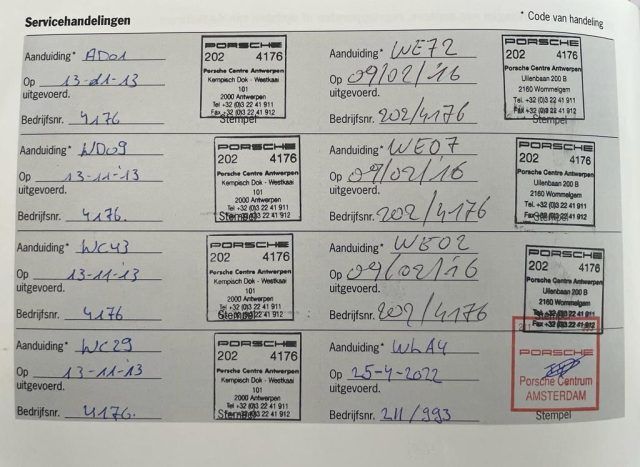 Servicehandelingen
* Code van handeling
Aanduiding* AD01
Op 13-11-13
uitgevoerd.
Bedrijfsnr. 4176
PORSCHE
202 4176
Porsche Centre Antwerpen
Kempisch Dok - Westkaai
101
2000 Antwerpen
Tel +32 (0)3 22 41 911
Fax +32 (0)3 22 41 912
Stempel
Aanduiding* WE72
Op 09/02/'16
uitgevoerd.
Bedrijfsnr. 202/4176
PORSCHE
202 4176
Porsche Centre Antwerpen
Uilenbaan 200 B
2160 Wommelgem
Tel. +32 (0)3 22 41 911
Fax +32 (0)3 22 41 912
Stempel
Aanduiding* WD09
Op 13-11-13
uitgevoerd.
Bedrijfsnr. 4176.
PORSCHE
202 4176
Porsche Centre Antwerpen
Kempisch Dok - Westkaai
101
2000 Antwerpen
Tel +32 (0)3 22 41 911
Fax +32 (0)3 22 41 912
Stempel
Aanduiding* WE07
Op 09/02/'16
uitgevoerd.
Bedrijfsnr. 202/4176
PORSCHE
202 4176
Porsche Centre Antwerpen
Uilenbaan 200 B
2160 Wommelgem
Tel. +32 (0)3 22 41 911
Fax +32 (0)3 22 41 912
Stempel
Aanduiding* WC43
Op 13-11-13
uitgevoerd.
Bedrijfsnr. 4176
PORSCHE
202 4176
Porsche Centre Antwerpen
Kempisch Dok - Westkaai
101
2000 Antwerpen
Tel +32 (0)3 22 41 911
Fax +32 (0)3 22 41 912
Stempel
Aanduiding* WE02
Op 09/02/'16
uitgevoerd.
Bedrijfsnr. 202/4176
PORSCHE
202 4176
Porsche Centre Antwerpen
Uilenbaan 200 B
2160 Wommelgem
Tel. +32 (0)3 22 41 911
Fax +32 (0)3 22 41 912
Aanduiding* WC29
Op 13-11-13
uitgevoerd.
Bedrijfsnr. 4176.
PORSCHE
202 4176
Porsche Centre Antwerpen
Kempisch Dok - Westkaai
101
2000 Antwerpen
Tel +32 (0)3 22 41 911
Fax +32 (0)3 22 41 912
Stempel
Aanduiding* WLA4
Op 25-4-2022
uitgevoerd.
Bedrijfsnr. 211/993
PORSCHE
Porsche Centrum
AMSTERDAM
Stempel